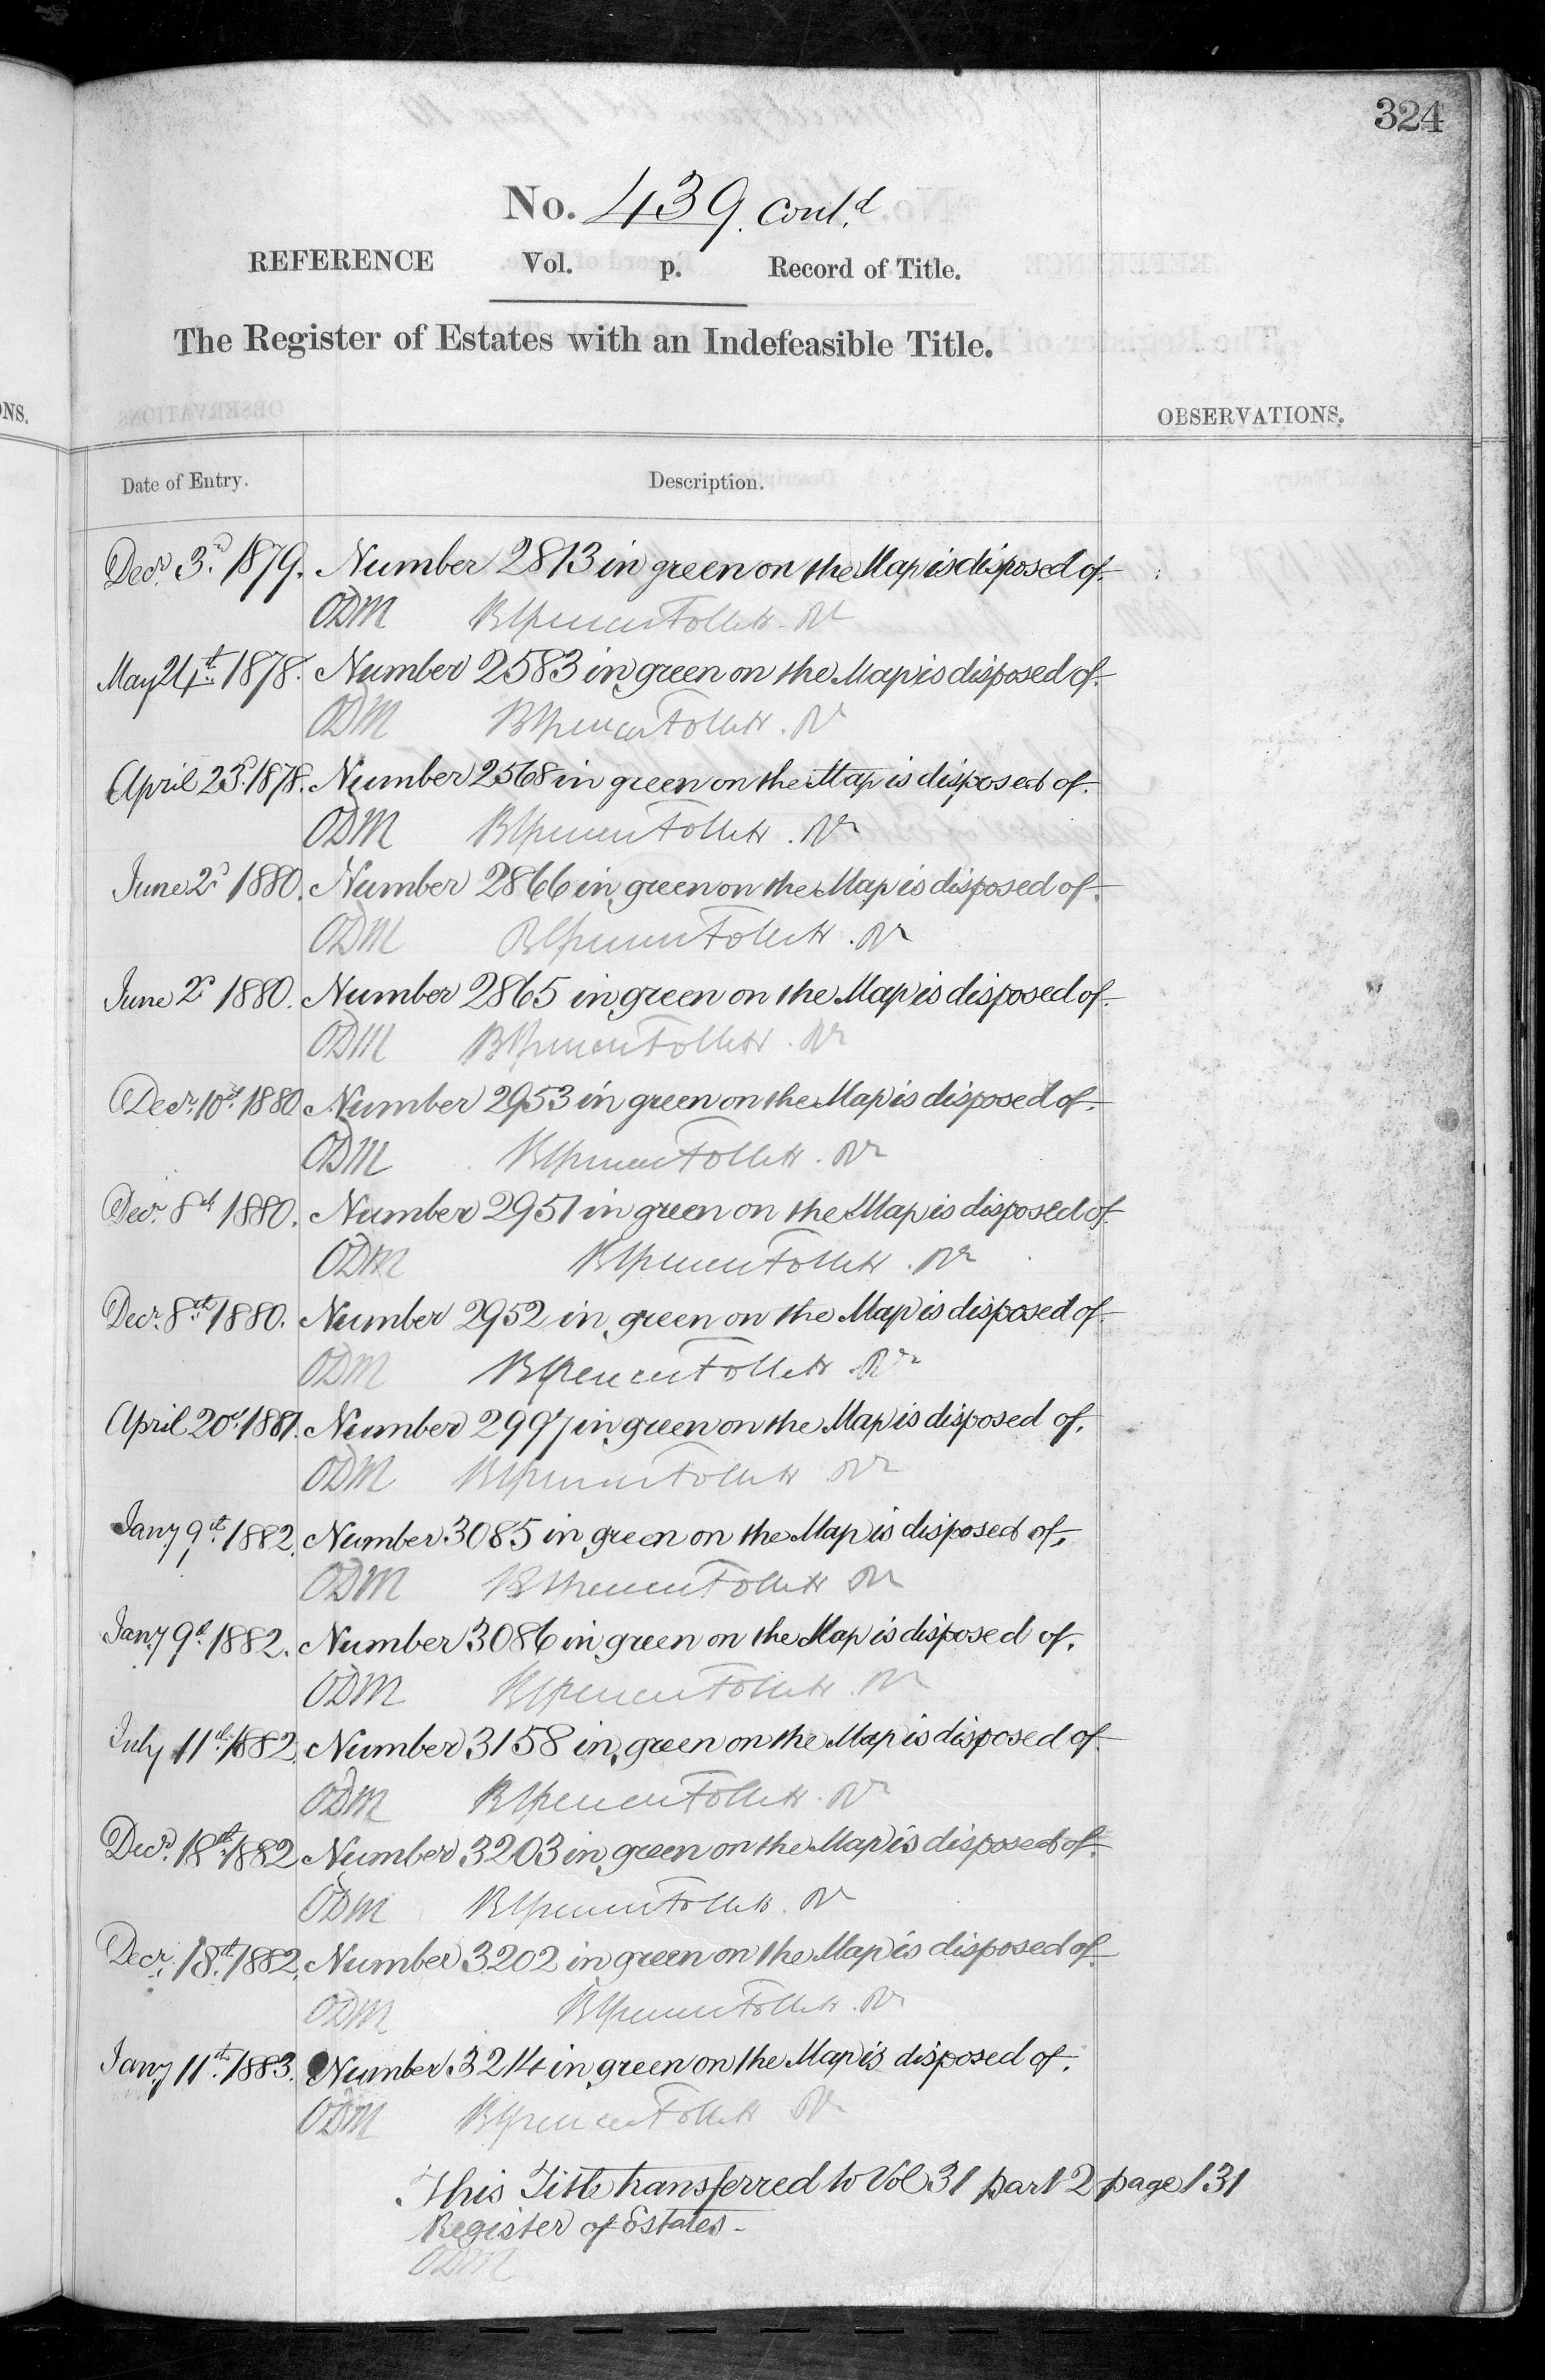 324
No. 439 cont.d
REFERENCE Vol. p. Record of Title.
The Register of Estates with an Indefeasible Title.
NS.
OBSERVATIONS.
Date of Entry. Description.
Decr. 3d. 1879. Number 2813 in green on the Map is disposed of.
ODM
May 24th. 1878. Number 2583 in green on the Map is disposed of.
ODM
April 23d. 1878. Number 2568 in green on the Map is disposed of.
ODM
June 2d 1880. Number 2866 in green on the Map is disposed of.
ODM
June 2d 1880. Number 2865 in green on the Map is disposed of.
ODM
Decr. 10th. 1880. Number 2953 in green on the Map is disposed of.
ODM
Decr. 8th 1880. Number 2951 in green on the Map is disposed of.
ODM
Decr. 8th. 1880. Number 2952 in green on the Map is disposed of.
ODM
April 20th. 1881. Number 2997 in green on the Map is disposed of.
ODM
Jany 9th. 1882. Number 3085 in green on the Map is disposed of.
ODM
Jany 9th. 1882. Number 3086 in green on the Map is disposed of.
ODM
July 11th. 1882. Number 3158 in green on the Map is disposed of.
ODM
Decr. 18th. 1882. Number 3203 in green on the Map is disposed of.
ODM
Decr. 18th. 1882. Number 3202 in green on the Map is disposed of.
ODM
Jany 11th. 1883. Number 3214 in green on the Map is disposed of.
ODM
This Title transferred to Vol 31 part 2 page 131
Register of Estates -
ODM